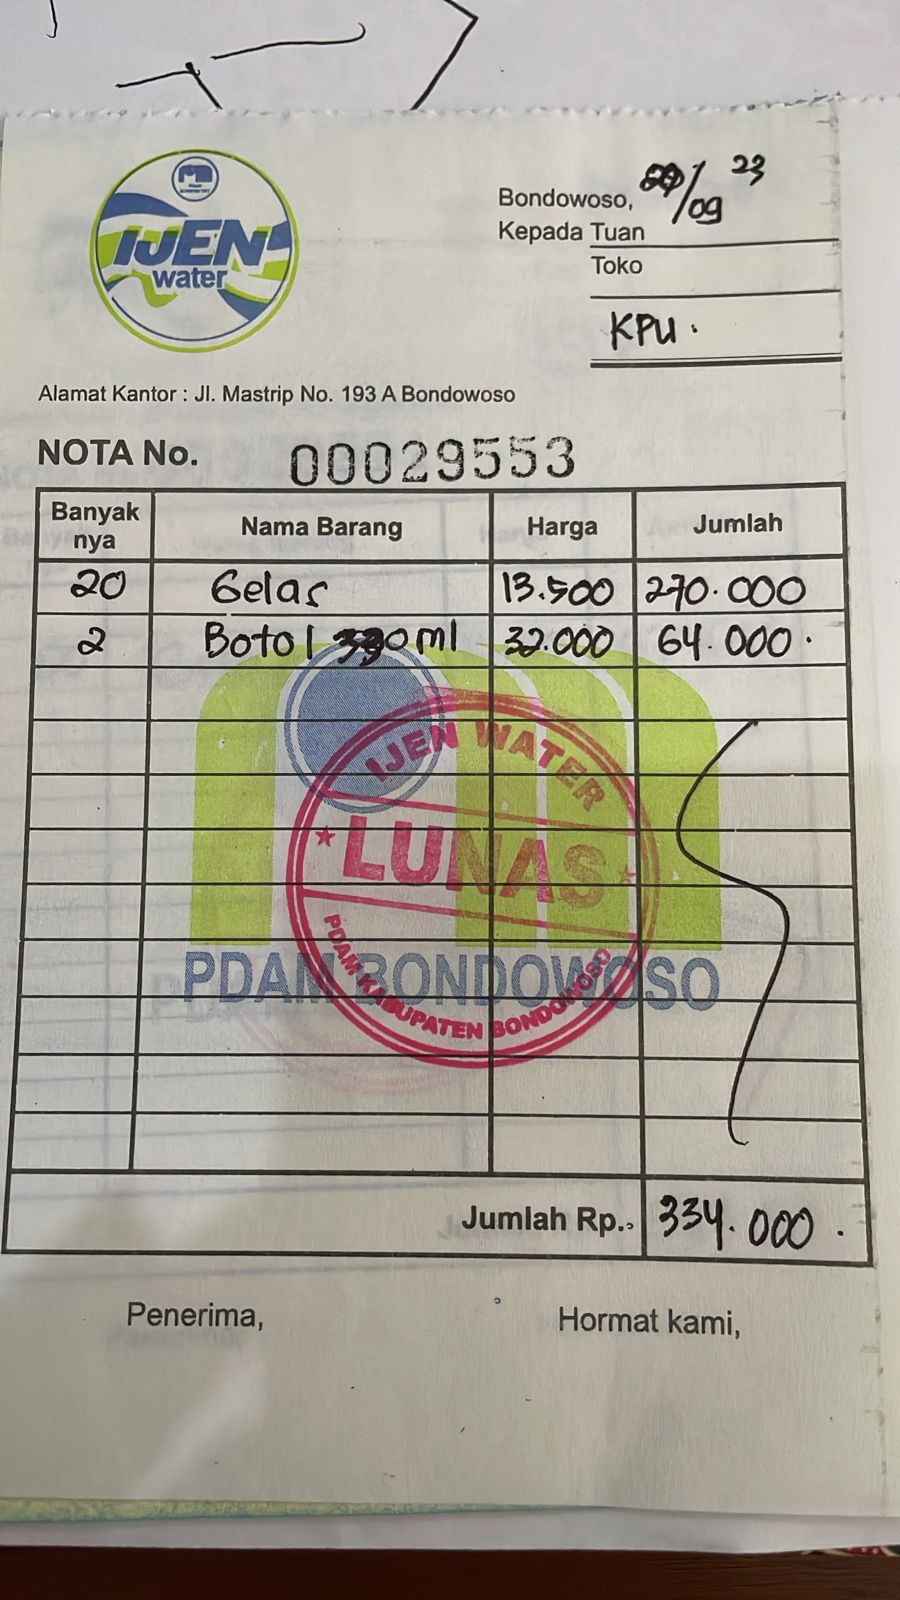 IJEN
water
Bondowoso, /09 23
Kepada Tuan
Toko
KPU.
Alamat Kantor : Jl. Mastrip No. 193 A Bondowoso
NOTA No. 00029553
Banyak nya Nama Barang Harga Jumlah
20 Gelas 13.500 270.000
2 Botol 330ml 32.000 64.000.
IJEN WATER
LUNAS
PDAM KABUPATEN BONDOWOSO
PDAM BONDOWOSO
Jumlah Rp. 334.000.
Penerima, Hormat kami,